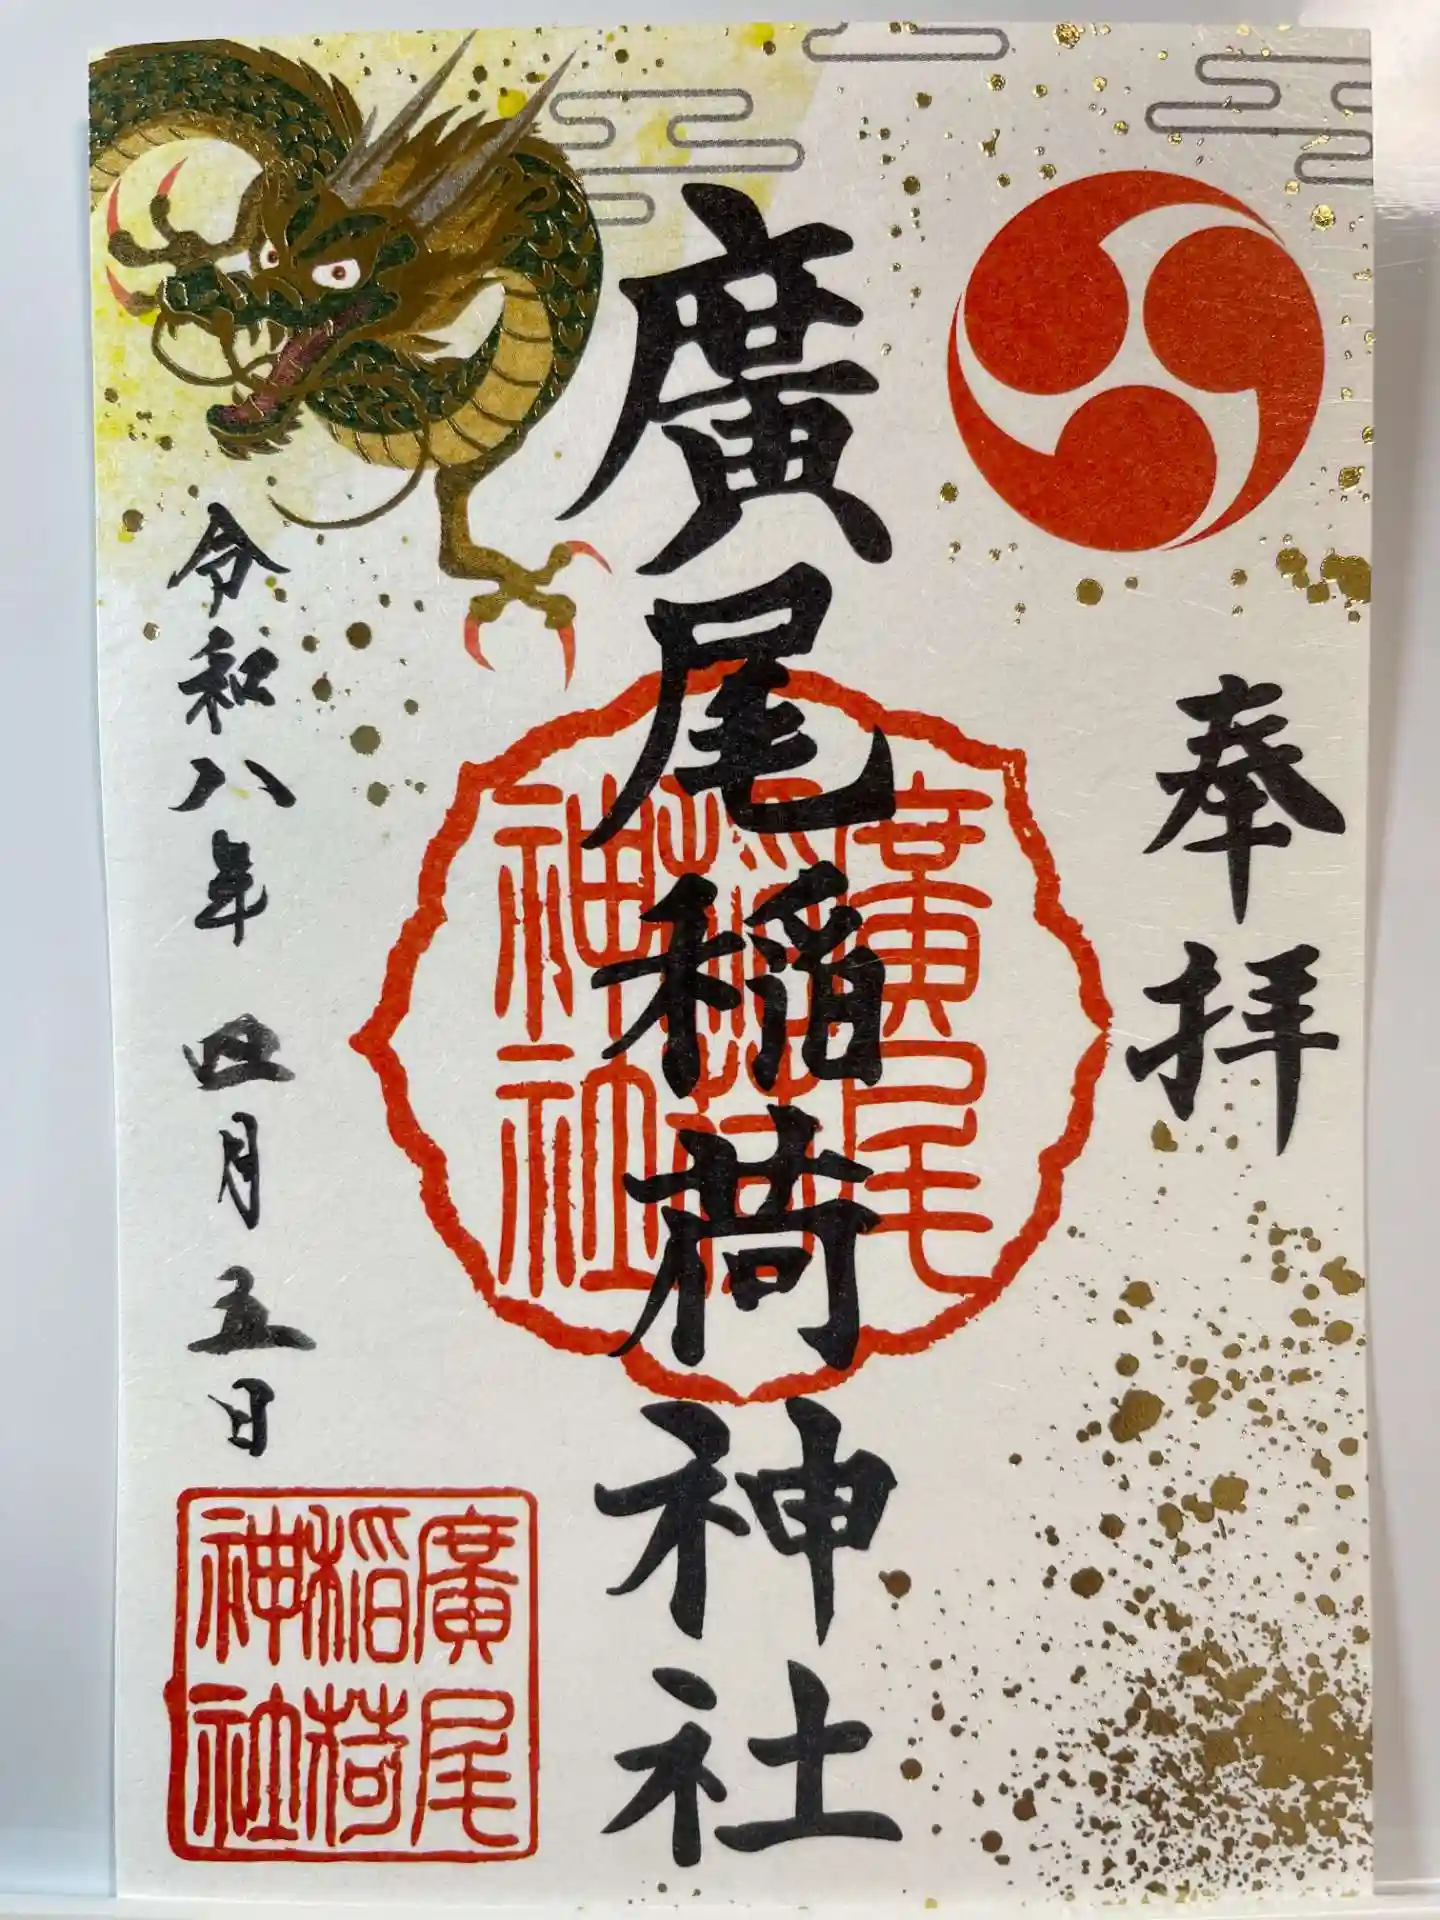 奉拝
廣尾稲荷神社
廣尾稲荷神社
令和八年 四月五日
廣尾稲荷神社